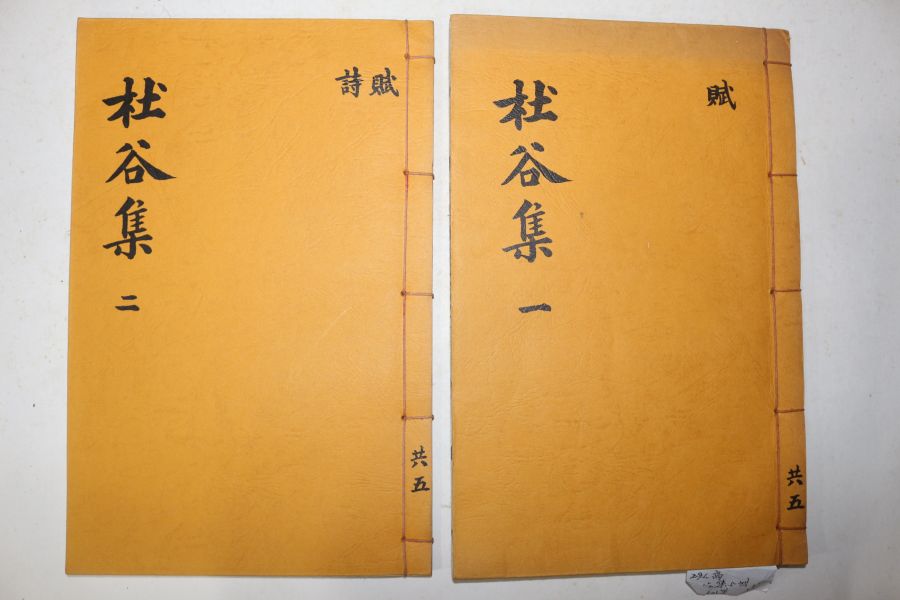 賦
杜谷集 一
共五
賦
詩
杜谷集 二
共五